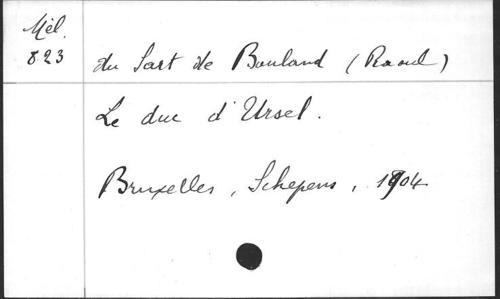 Mél.
823
du Sart de Bouland (Raoul)
Le duc d'Ursel.
Bruxelles, Schepens, 1904